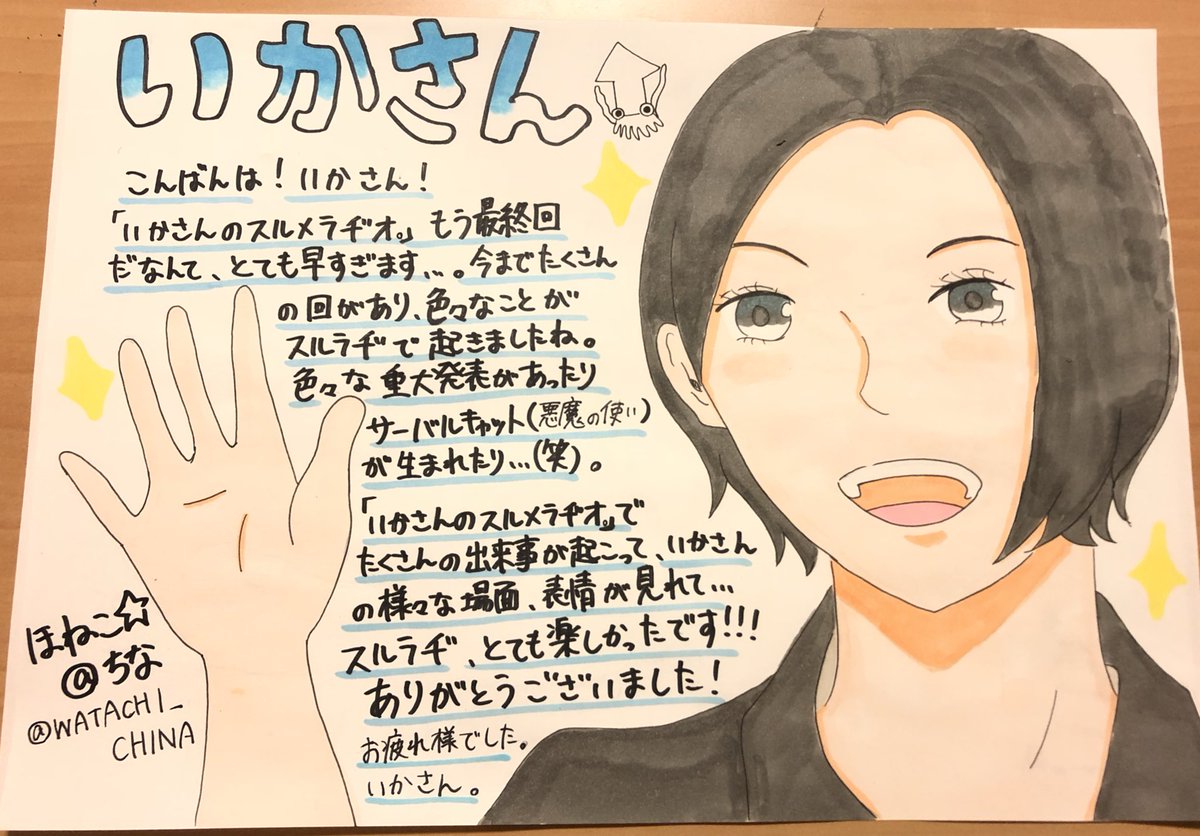 いかさん
こんばんは！いかさん！
「いかさんのスルメラヂオ。」もう最終回
だなんて、とても早すぎます…。今までたくさん
の回があり、色々なことが
スルラヂで起きましたね。
色々な重大発表があったり
サーバルキャット(悪魔の使い)
が生まれたり…(笑)。
「いかさんのスルメラヂオ。」で
たくさんの出来事が起こって、いかさん
の様々な場面、表情が見れて…
スルラヂ、とても楽しかったです!!!
ありがとうございました！
お疲れ様でした。
いかさん。
ほねこ☆
@ちな
@WATACHI_
CHINA